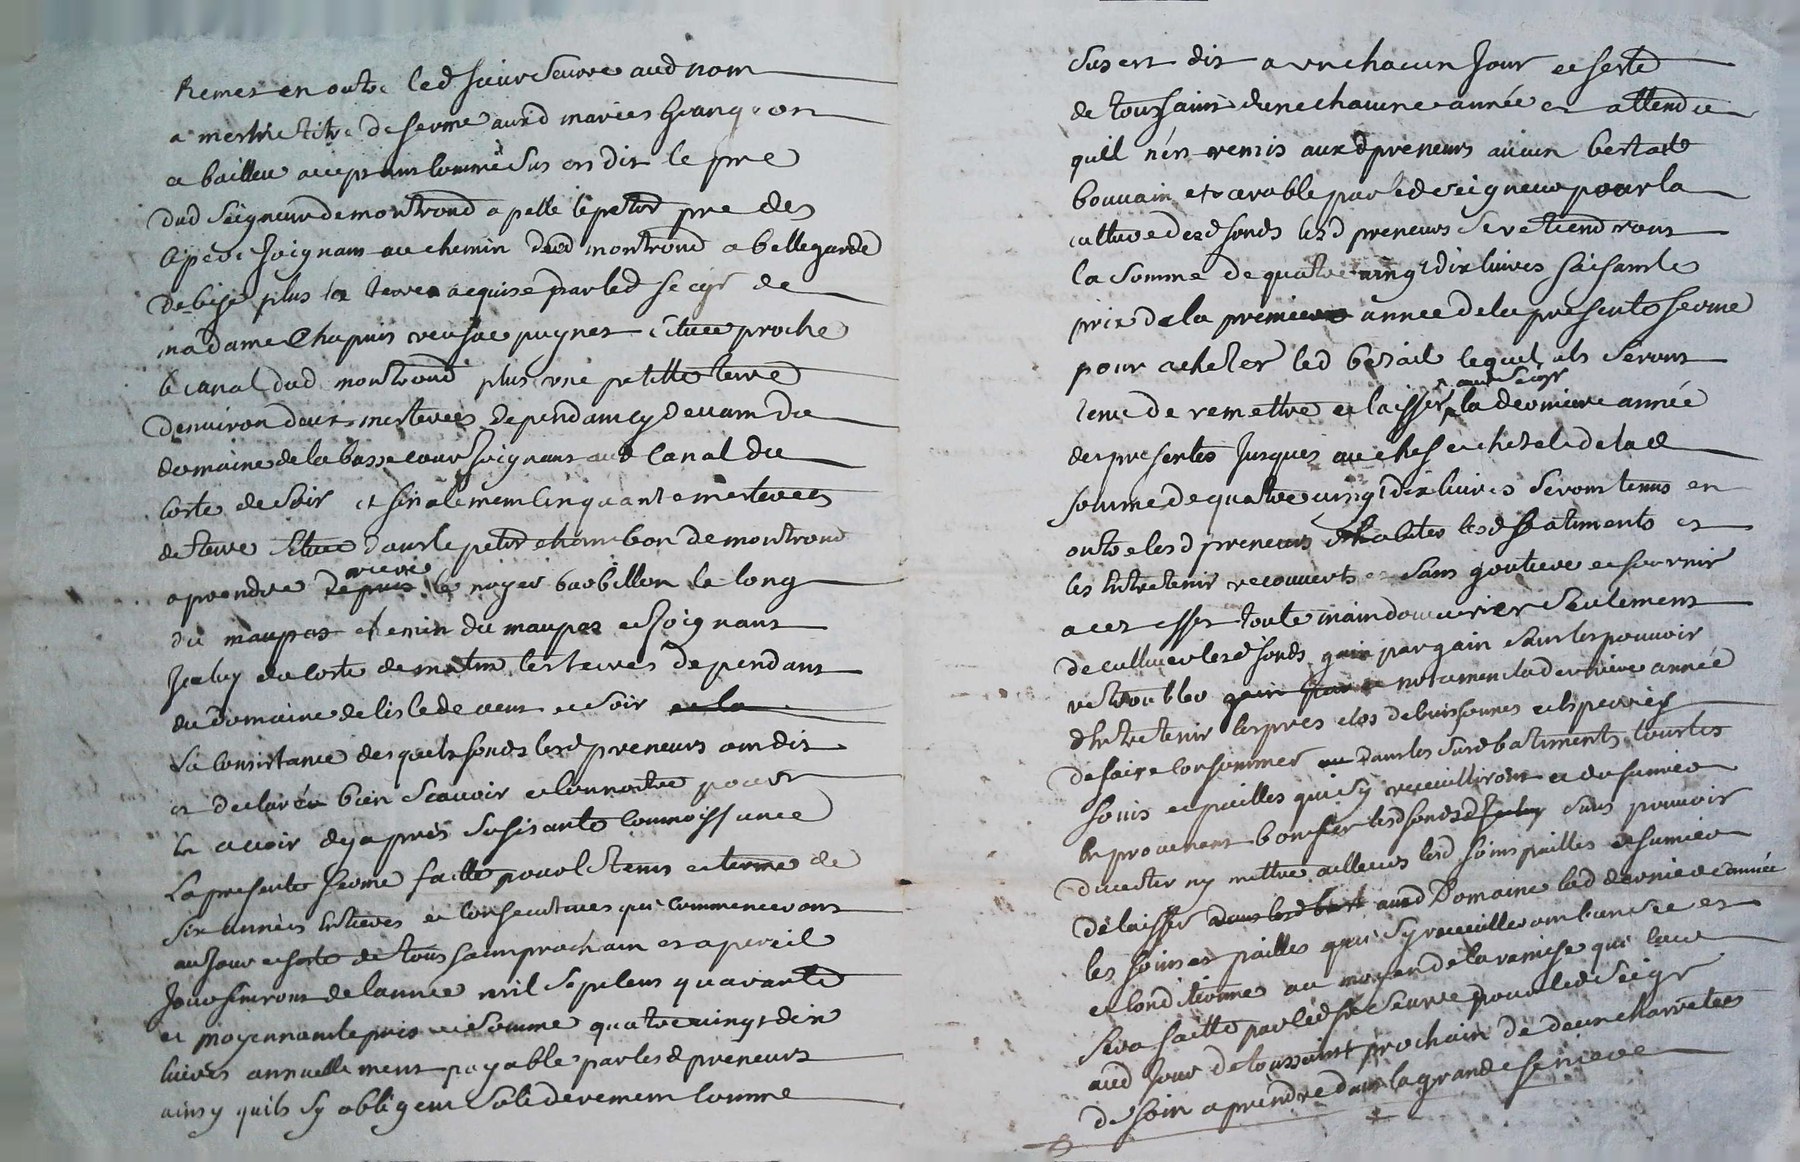 Remet en outre led sieur Seurre aud nom
a mesme titre de ferme auxd mariés Grangeon
a bailleu acceptant comme sus est dit le pre
dud Seigneur de montrond apelle le petit pre des
joignant au chemin dud montrond a bellegarde
de bise plus la terre acquise par led Seigr de
madame Chapuis veufve puynet scituee proche
le canal dud montrond plus une petitte terre
denviron deux mesterees dependant cy devant du
domaine de la basse cour joignant aud Canal du
costé de soir et finalement cinquante mesterees
de terre scituee dans le petit chambon de montrond
a prendre depuis le noyer barbillon le long
du maupas chemin du maupas et joignant
jceluy du costé de matin les terres dependant
du domaine de lisle de vent et soir et la
la consistance desquels fonds lesd preneurs ont dit
et declaré bien scavoir et connoitre pour
en avoir deja pris sufisante connoissance
La presente ferme faitte pour le tems et terme de
six années entieres et consecutives qui commenceront
au jour et feste de toussaint prochain et a pareil
jour finiront de lannee mil sept cens quarante
et moyennant le prix et somme quatre vingt dix
livres annuellement payable par lesd preneurs
ainsy quils sy obligent solidairement comme
sus est dit a un chacun jour et feste
de toussaint dune chacune année et attendu
quil nest remis auxd preneurs aucun bestail
bouvain et arable par led seigneur pour la
culture desd fonds lesd preneurs se retiendront
la somme de quatre vingt dix livres faisant le
prix de la premiere année de la presente ferme
pour acheter led betail lequel ils seront
tenu de remettre et laisser aud Seigr la derniere année
des presentes jusques au chef et chetel de lad
somme de quatre vingt dix livres seront tenus en
outre lesd preneurs dhabiter lesd batiments et
les entretenir recouverts et sans goutiere et fournir
a cet effet toute main douvrier seulement
de cultiver lesd fonds gain par gain sans les pouvoir
restroubler gain par notament lad derniere année
dentretenir les pres clos debuissonnes et
de faire consommer dans les susd batiments tous les
foins et pailles qui sy recueilliront et du fumier
en provenant bonifier lesd fonds sans pouvoir
divertir ny mettre ailleurs lesd foins pailles et fumier
delaisser dans lesd bat aud Domaine lad derniere année
les foins et pailles qui sy recueilleront et
et conditionné au moyen de la remise qui leur
sera faitte par led sr Seurre pour led Seigr
aud jour de toussaint prochain de deux charretees
de foin a prendre dans la grande feniere